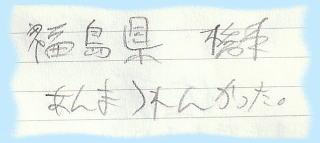 福島県
あんまうれんかった。